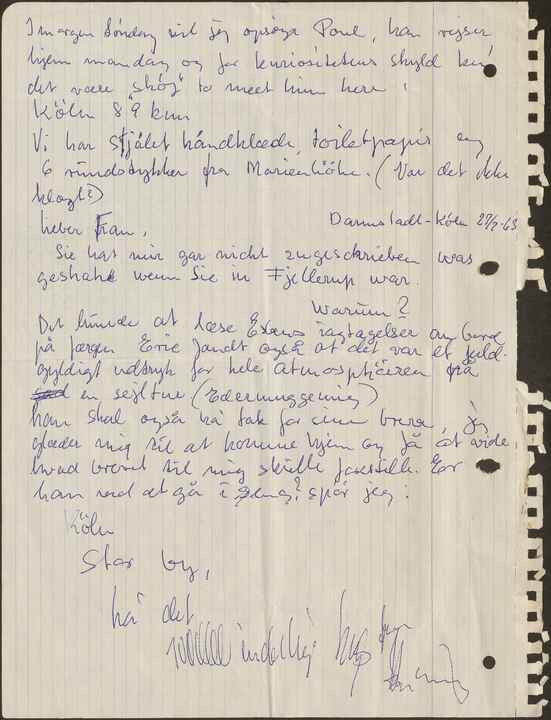 I morgen Söndag vil jeg opsöge Poul, han rejser
hjem mandag og for kuriositetens skyld kun
det være "skög" to meet him here!
Köln 89 km
Vi har stjålet håndklæde, toiletpapir og
6 rundstykker fra Marienhöhe. (Var det ikke
klogt?)
Darmstadt-Köln 27/7-63
lieber Fran,
Sie hat mir gar nicht zugeschrieben was
geshah wenn Sie in Fjellerup war.
Warum?
Det lunede at læse iagtagelser om bord
på færgen også at det var et fuld
gyldigt udtryk for hele atmosphæren på
en sejltur
han skal også há tak for sine breve, jeg
glæder mig til at komme hjem og få at vide
hvad brevet til mig skulle forestille. Er
han ved at gå i spør jeg!
Köln
Stor by,
há det
inderlig